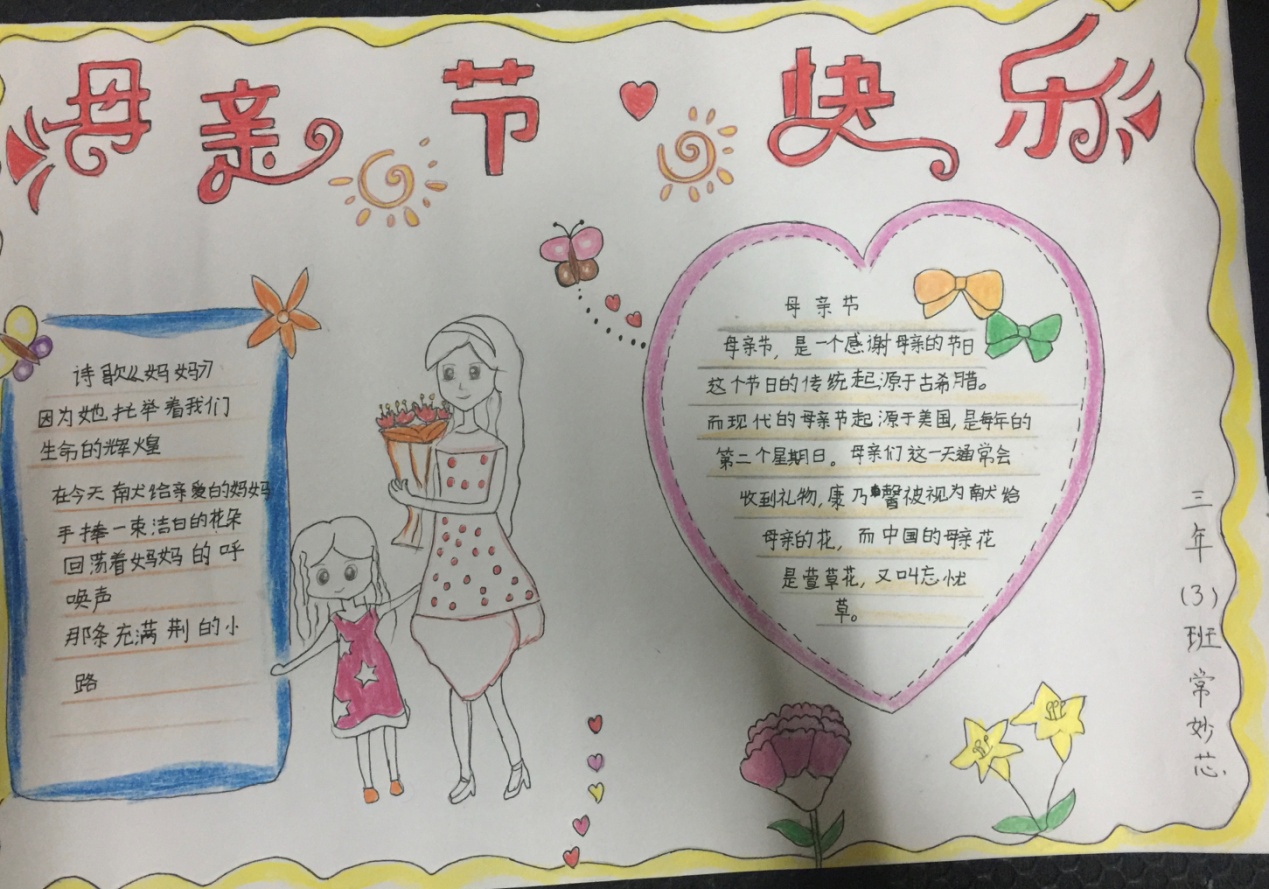 母亲节快乐
诗歌《妈妈》
因为她托举着我们
生命的辉煌
在今天献给亲爱的妈妈
手捧一束洁白的花朵
回荡着妈妈的呼
唤声
那条充满荆的小
路
母亲节
母亲节，是一个感谢母亲的节日
这个节日的传统起源于古希腊。
而现代的母亲节起源于美国，是每年的
第二个星期日。母亲们这一天通常会
收到礼物，康乃馨被视为献给
母亲的花，而中国的母亲花
是萱草花，又叫忘忧
草。
三年(3)班常妙芯